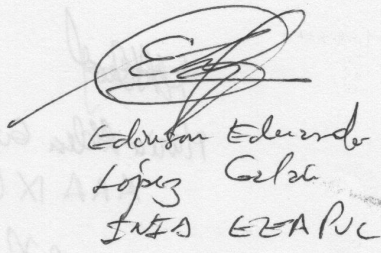 Edouson Eduardo
López Galán
INIA EEEA PUC